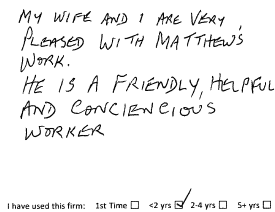 MY WIFE AND I ARE VERY
PLEASED WITH MATTHEW'S
WORK.
HE IS A FRIENDLY, HELPFUL
AND CONCIENCIOUS
WORKER
I have used this firm: 1st Time ☐ <2 yrs ☑ 2-4 yrs ☐ 5+ yrs ☐